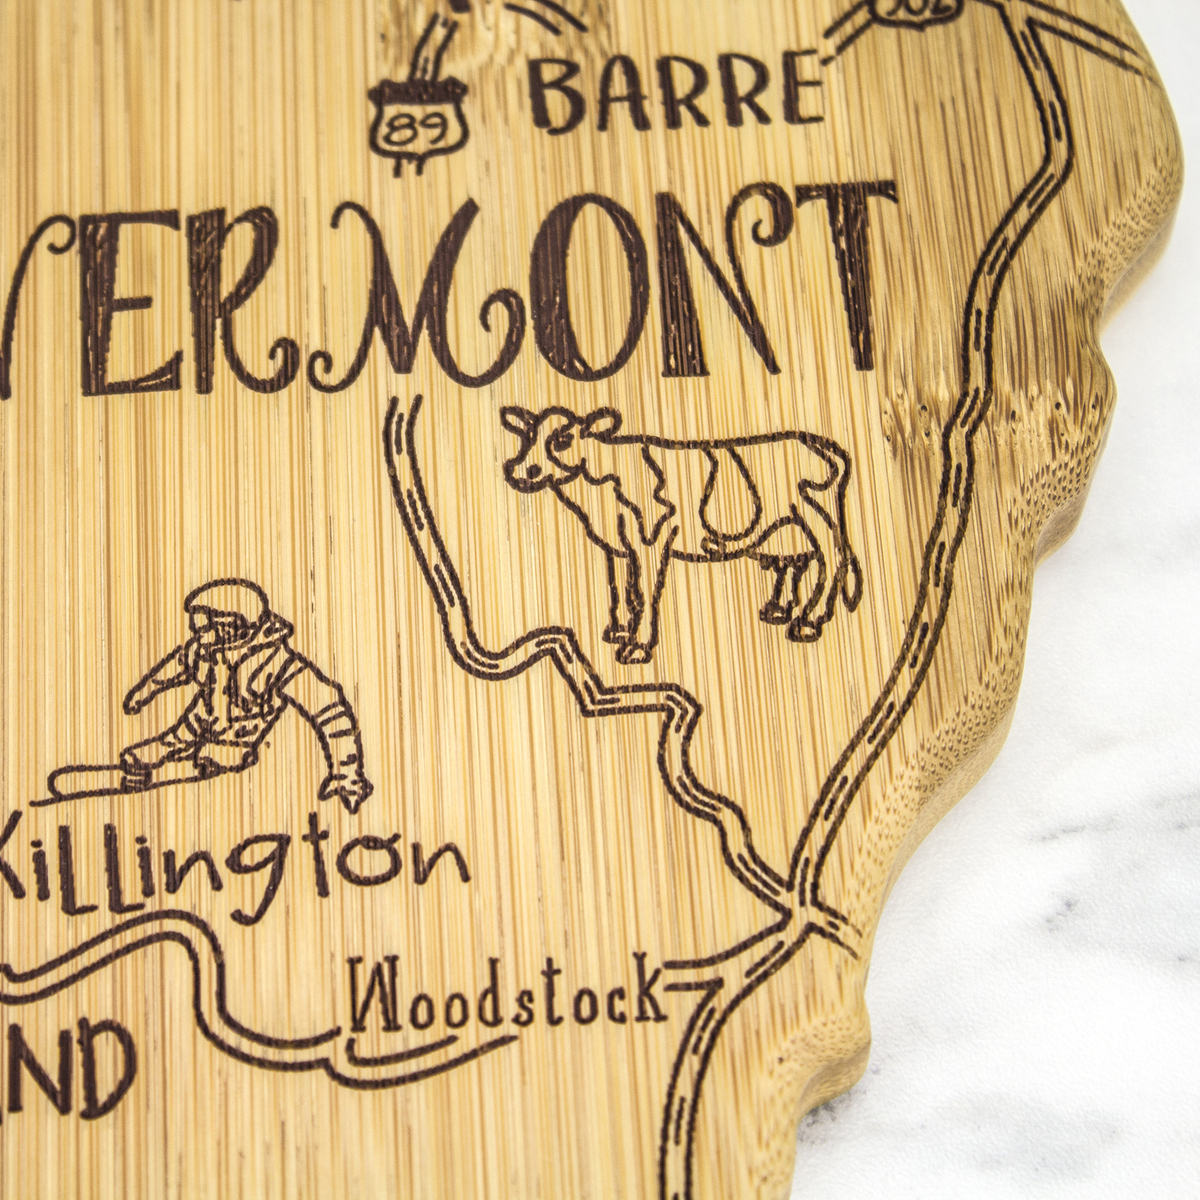 302
BARRE
89
VERMONT
Killington
Woodstock
ND